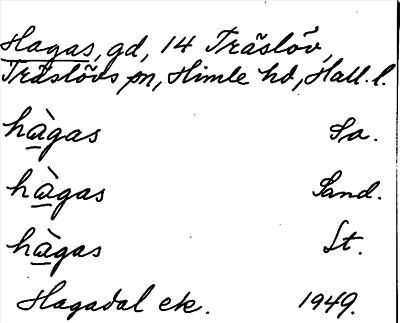 Hagas, gd, 14 Träslöv,
Träslövs sn, Himle hd, Hall. l.
hàgas Sa.
hàgas Sand.
hàgas St.
Hagadal ek. 1949.